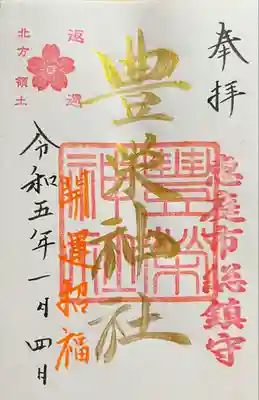 奉拝
恵庭市総鎮守
豊栄神社
豊栄神社
開運招福
返還
北方領土
令和五年一月四日